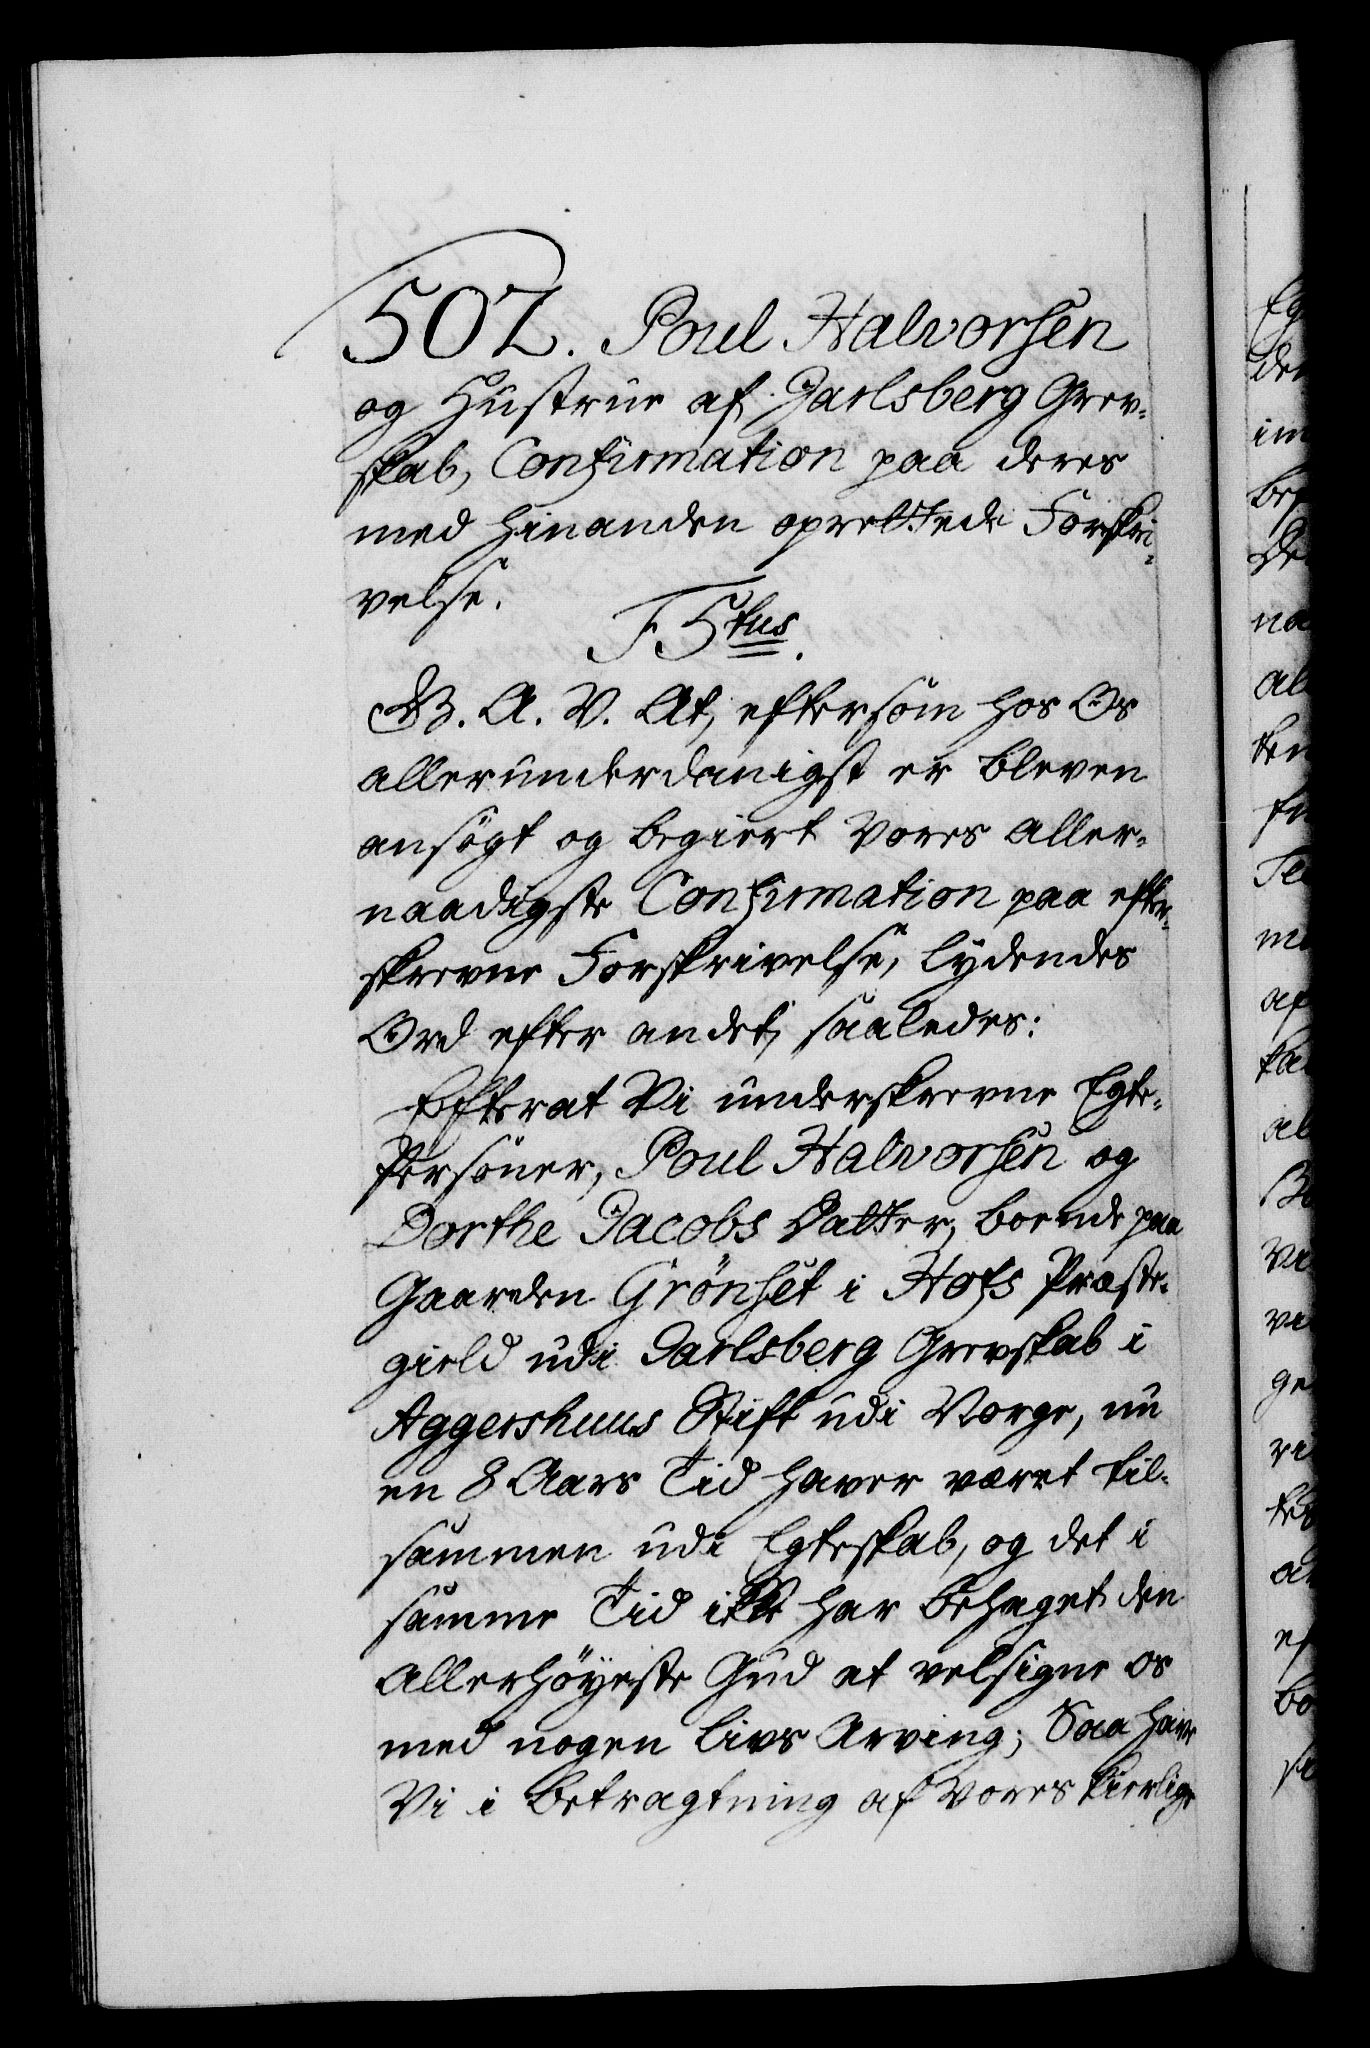 507. Poul Halvorsen
og Hustrue af Jarlsberg Grev-
skab, Confirmation paa deres
med hinanden oprettede Forskri-
velse.
F 5tus.
G. A. V. At, eftersom hos Os
allerunderdanigst er bleven
ansøgt og begiert Vores Aller-
naadigste Confirmation paa efter-
skrevne Forskrivelse, lydendes
Ord efter andet, saaledes:
Efterat Vi underskrevne Egte-
Personer, Poul Halvorsen og
Dorthe Jacobs Datter, boende paa
Gaarden Grönset i Hofs Præste-
gield udi Jarlsberg Grevskab i
Aggershuus Stift udi Norge, nu
en 8 Aars Tid haver været til-
sammen udi Egteskab, og det i
samme Tid ikke har behaget den
Allerhöyeste Gud at velsigne os
med nogen Livs Arving; Saa have
Vi i betragtning af Vores kierlige